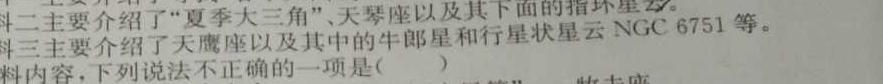 料二主要介绍了“夏季大三角”、天琴座以及其下面的指环星云。
料三主要介绍了天鹰座以及其中的牛郎星和行星状星云 NGC 6751 等。
料内容,下列说法不正确的一项是(　　)